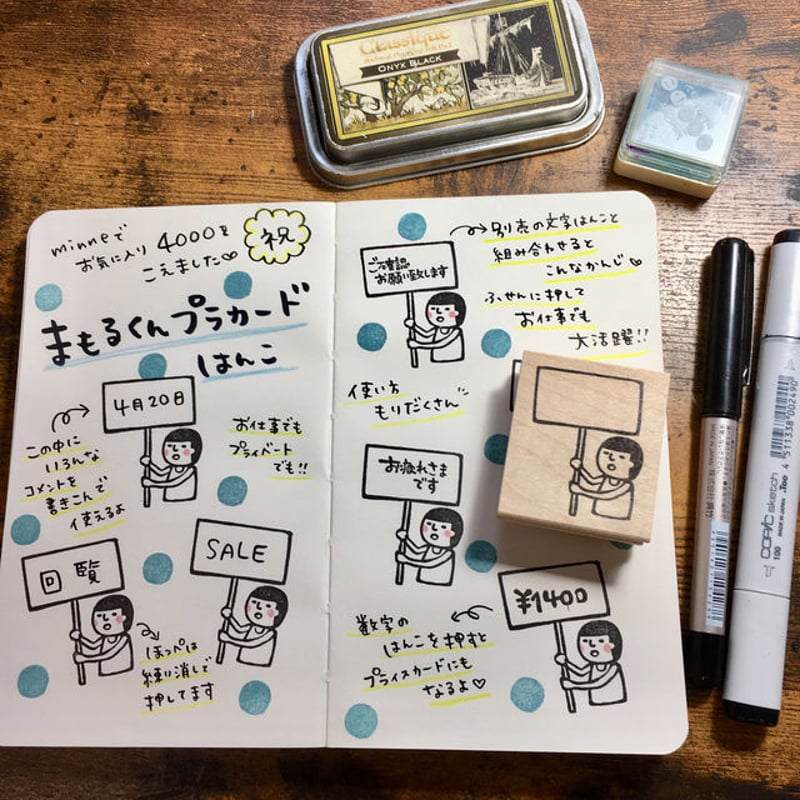 Classique
ONYX BLACK
minneで
お気に入り 4000を
こえました♡
祝
まもるくんプラカード
はんこ
4月20日
この中に
いろんな
コメントを
書きこんで
使えるよ
お仕事でも
プライベート
でも!!
回覧
SALE
ほっぺは
練り消しで
押してます
ご確認
お願い致します
別売の文字はんこと
組み合わせると
こんなかんじ♡
ふせんに押して
お仕事でも
大活躍!!
使い方
もりだくさん
お疲れさま
です
¥1400
数字の
はんこを押すと
プライスカードにも
なるよ♡
COPIC sketch
.Too
MADE IN JAPAN
100
4 511338 002490